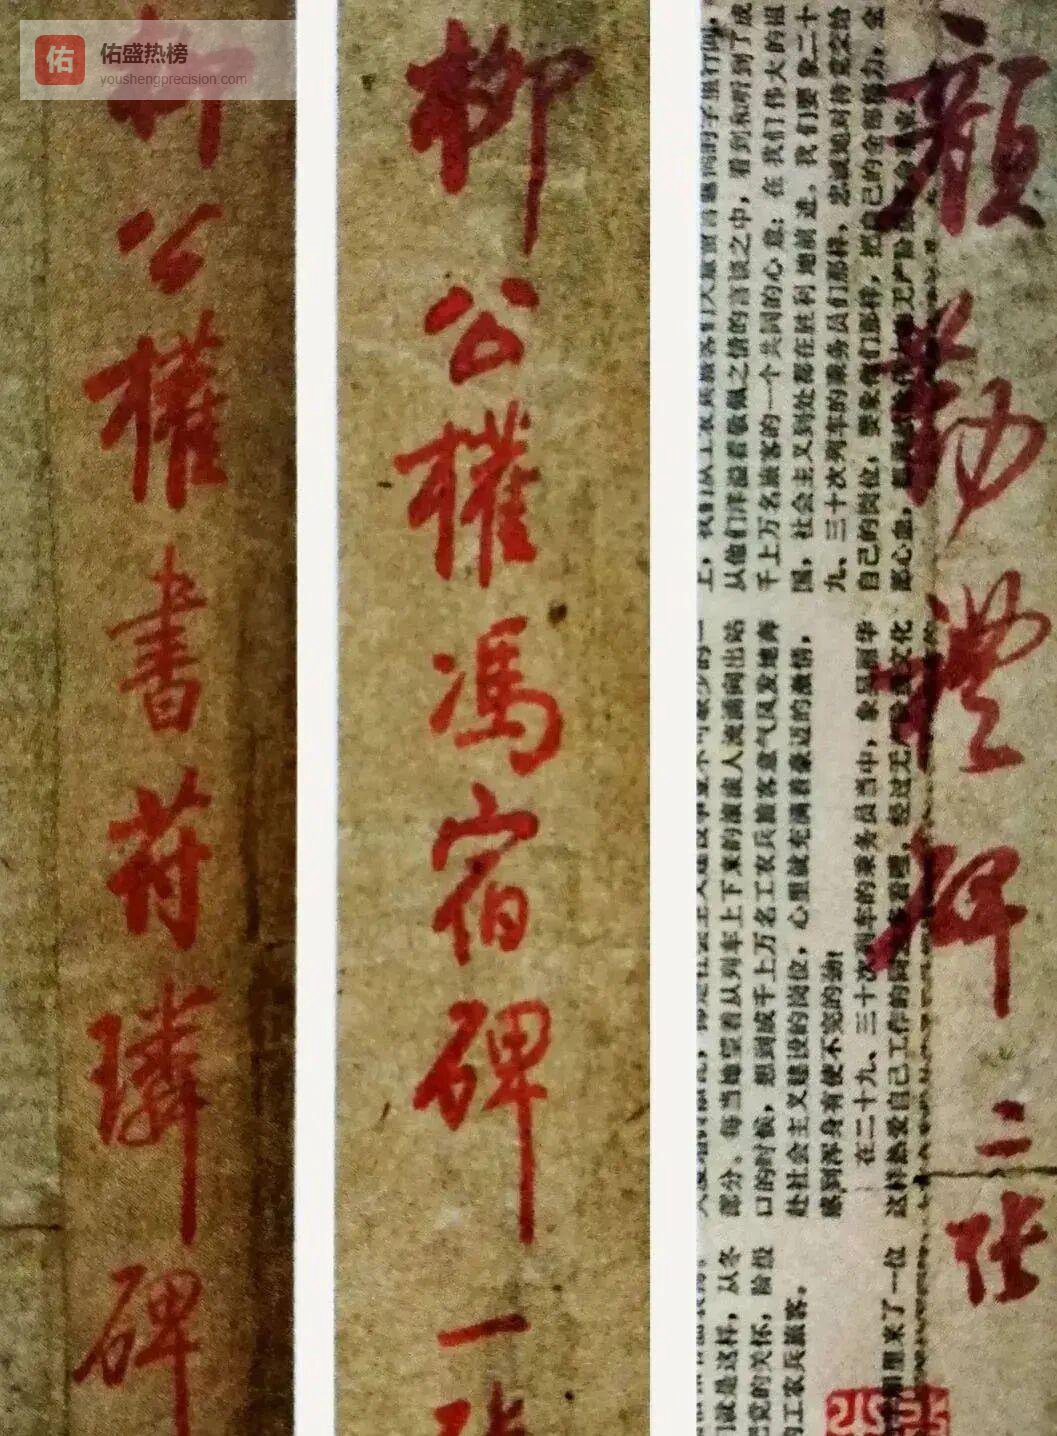 佑
佑盛热榜
youshengprecision.com
柳公權書苻璘碑
柳公權馮宿碑一張
顏勤禮碑二张
成
看到和听到了
从他们洋溢着敬佩之情的言谈之中,
千上万名旅客的一个共同的心意:在我们伟大的祖
国,社会主义到处都在胜利地前进。我们要象二十
九、三十次列车的乘务员们那样,忠诚地对待党交给
自己的岗位,要象他们那样,把自己的全部精力,全
部心血,
部分。每当她望着从列车上下来的滚滚人流涌向出站
口的时候,想到成千上万名工农兵旅客意气风发地奔
赴社会主义建设的岗位,心里就充满着豪迈的激情,
感到浑身有使不完的劲!
在二十九、三十次列车的乘务员当中,象吴丽华
这样热爱自己工作的同志
经过无产阶级文化
就是这样,从冬
党的关怀,阶级
的工农兵旅客。
厢里来了一位